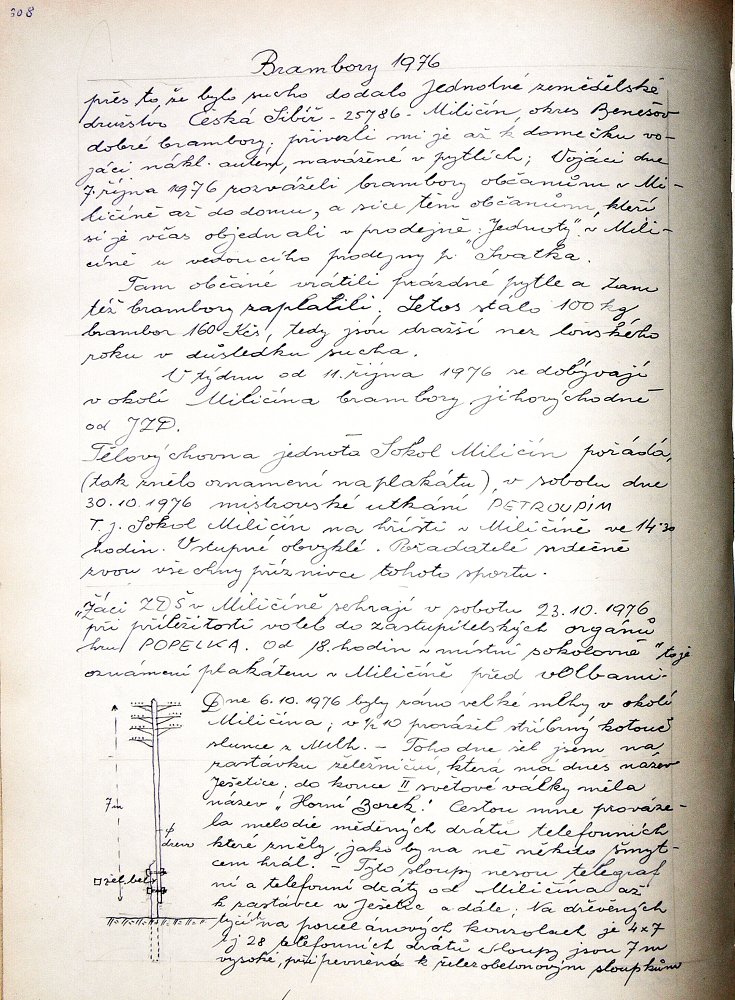 308
Brambory 1976
přes to, že bylo sucho dodalo Jednotné zemědělské
družstvo Česká Sibiř - 25786 - Miličín, okres Benešov
dobré brambory; přivezli mi je až k domečku vo-
jáci nákl. autem, navážené v pytlích; Vojáci dne
7. října 1976 rozváželi brambory občanům v Mi-
ličíně až do domu, a sice těm občanům, kteří
si je včas objednali v prodejně "Jednoty" v Mili-
číně u vedoucího prodejny p. Svatka.
Tam občané vrátili prázdné pytle a tam
též brambory zaplatili; Letos stálo 100 kg
brambor 160 Kčs, tedy jsou dražší než lonského
roku v důsledku sucha.
V týdnu od 11. října 1976 se dobývají
v okolí Miličína brambory, jihovýchodně
od JZD.
Tělovýchovna jednota Sokol Miličín pořádá,
(tak znělo oznamení na plakátu), v sobotu dne
30.10.1976 mistrovské utkání PETROUPIM
T.j. Sokol Miličín na hřišti v Miličíně ve 14.30
hodin. Vstupné obvyklé. Pořadatelé srdečně
zvou všechny příznivce tohoto sportu.
"Žáci ZDŠ v Miličíně sehrají v sobotu 23.10.1976
při příležitosti voleb do zastupitelských orgánů
hru POPELKA. Od 18. hodin v místní sokolovně" to je
oznámení plakátem v Miličíně před volbami.
Dne 6.10.1976 byly ráno velké mlhy v okolí
Miličína; v ½ 10 prorazil stříbrný kotouč
slunce z Mlh. - Toho dne šel jsem na
zastávku železniční, která má dnes název
Ješetice; do konce II světové války měla
název "Horní Borek". Cestou mne prováze-
la melodie měděných drátů telefonních
které zněly, jako by na ně někdo šmyt-
cem hrál. - Tyto sloupy nesou telegraf
ní a telefonní dráty od Miličína až
k zastávce v Ješetic a dále; Na dřevěných
tyčích na porcelánových konzolach je 4x7
tj 28 telefonních drátů sloupy jsou 7 m
vysoké, připevněná k železobetonovým sloupkům
7 m
ϕ
dřev
žel. bet.